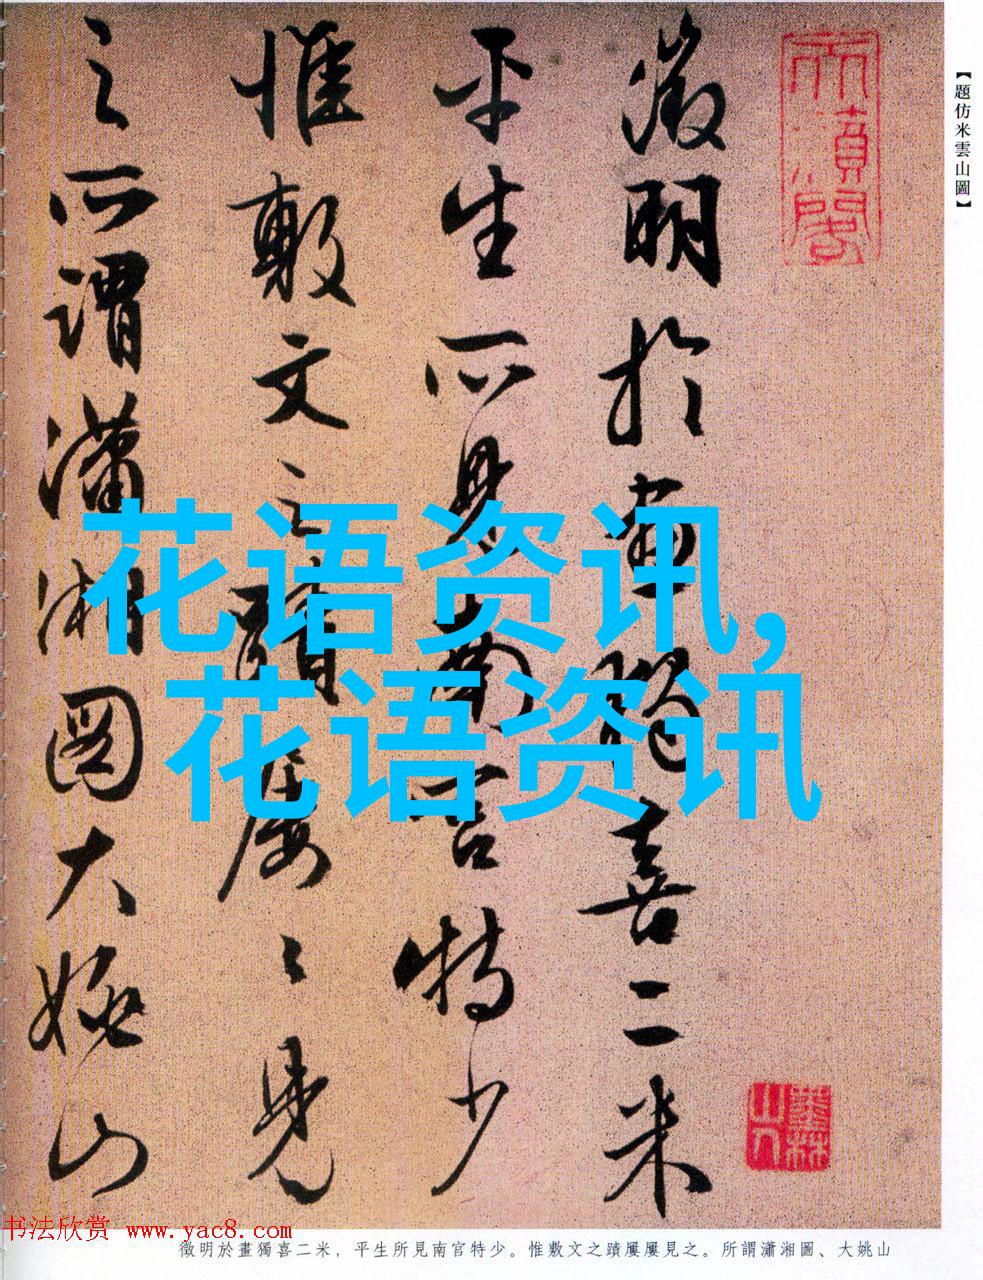 【題仿米雲山圖】
徵明於畫獨喜二米
平生所見南宮特少
惟敷文之蹟屢〻見
之所謂瀟湘圖大姚山
花语资讯，
花语资讯
书法欣赏 www.yac8.com
徵明於畫獨喜二米，平生所見南官特少。惟敷文之蹟屢屢見之。所謂瀟湘圖、大姚山